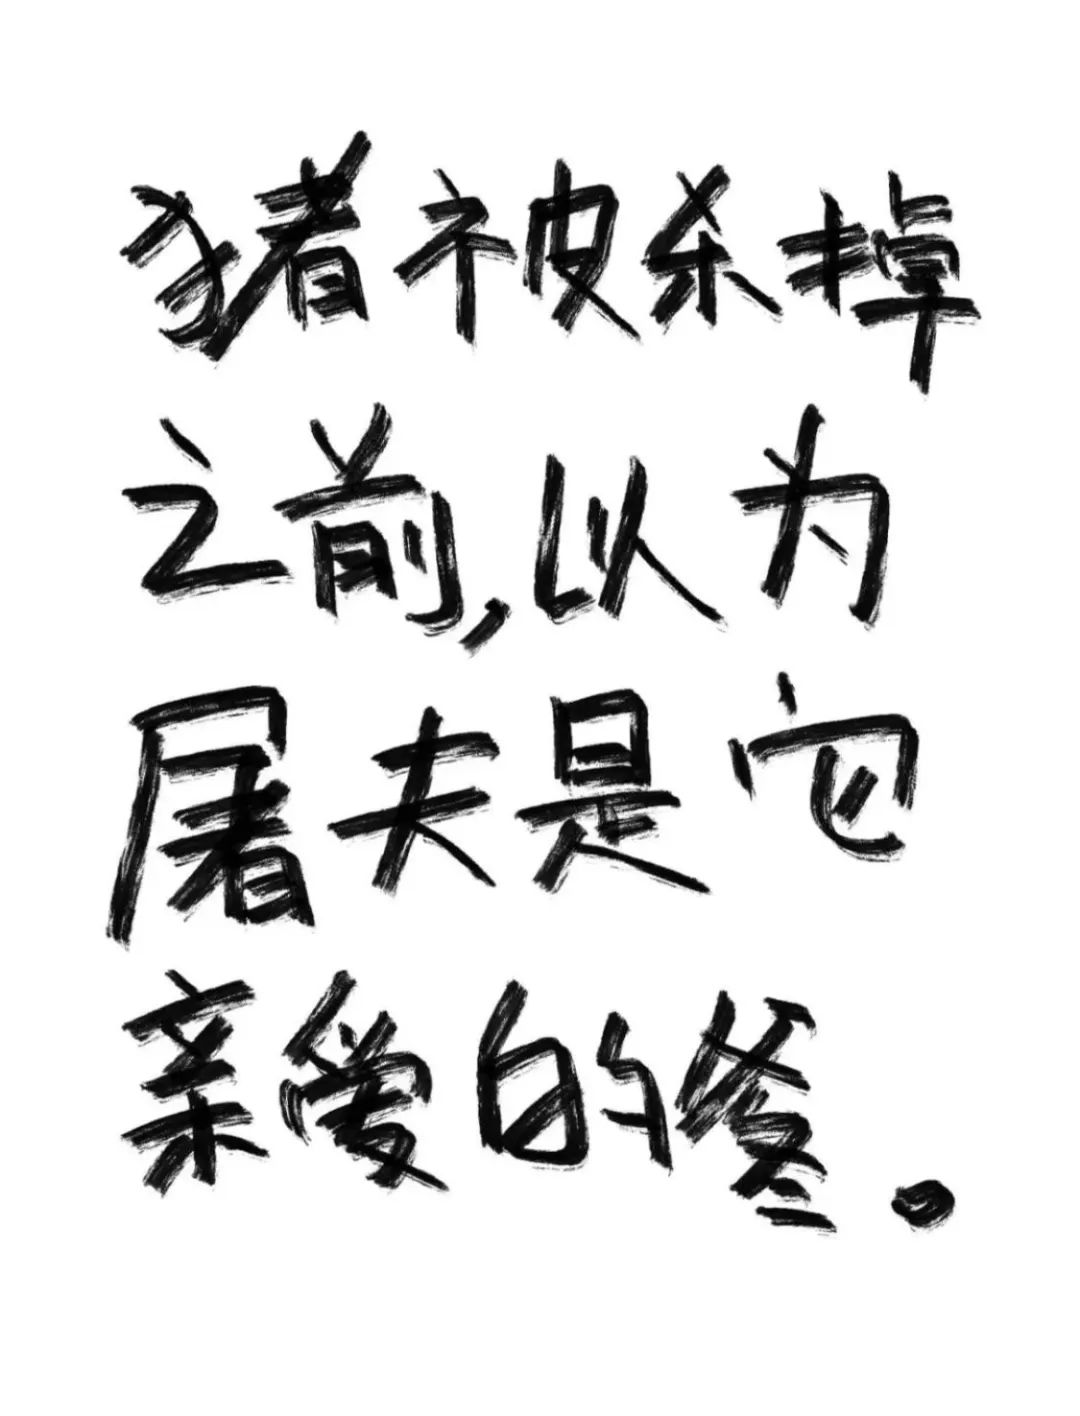 猪被杀掉
之前,以为
屠夫是它
亲爱的爹。